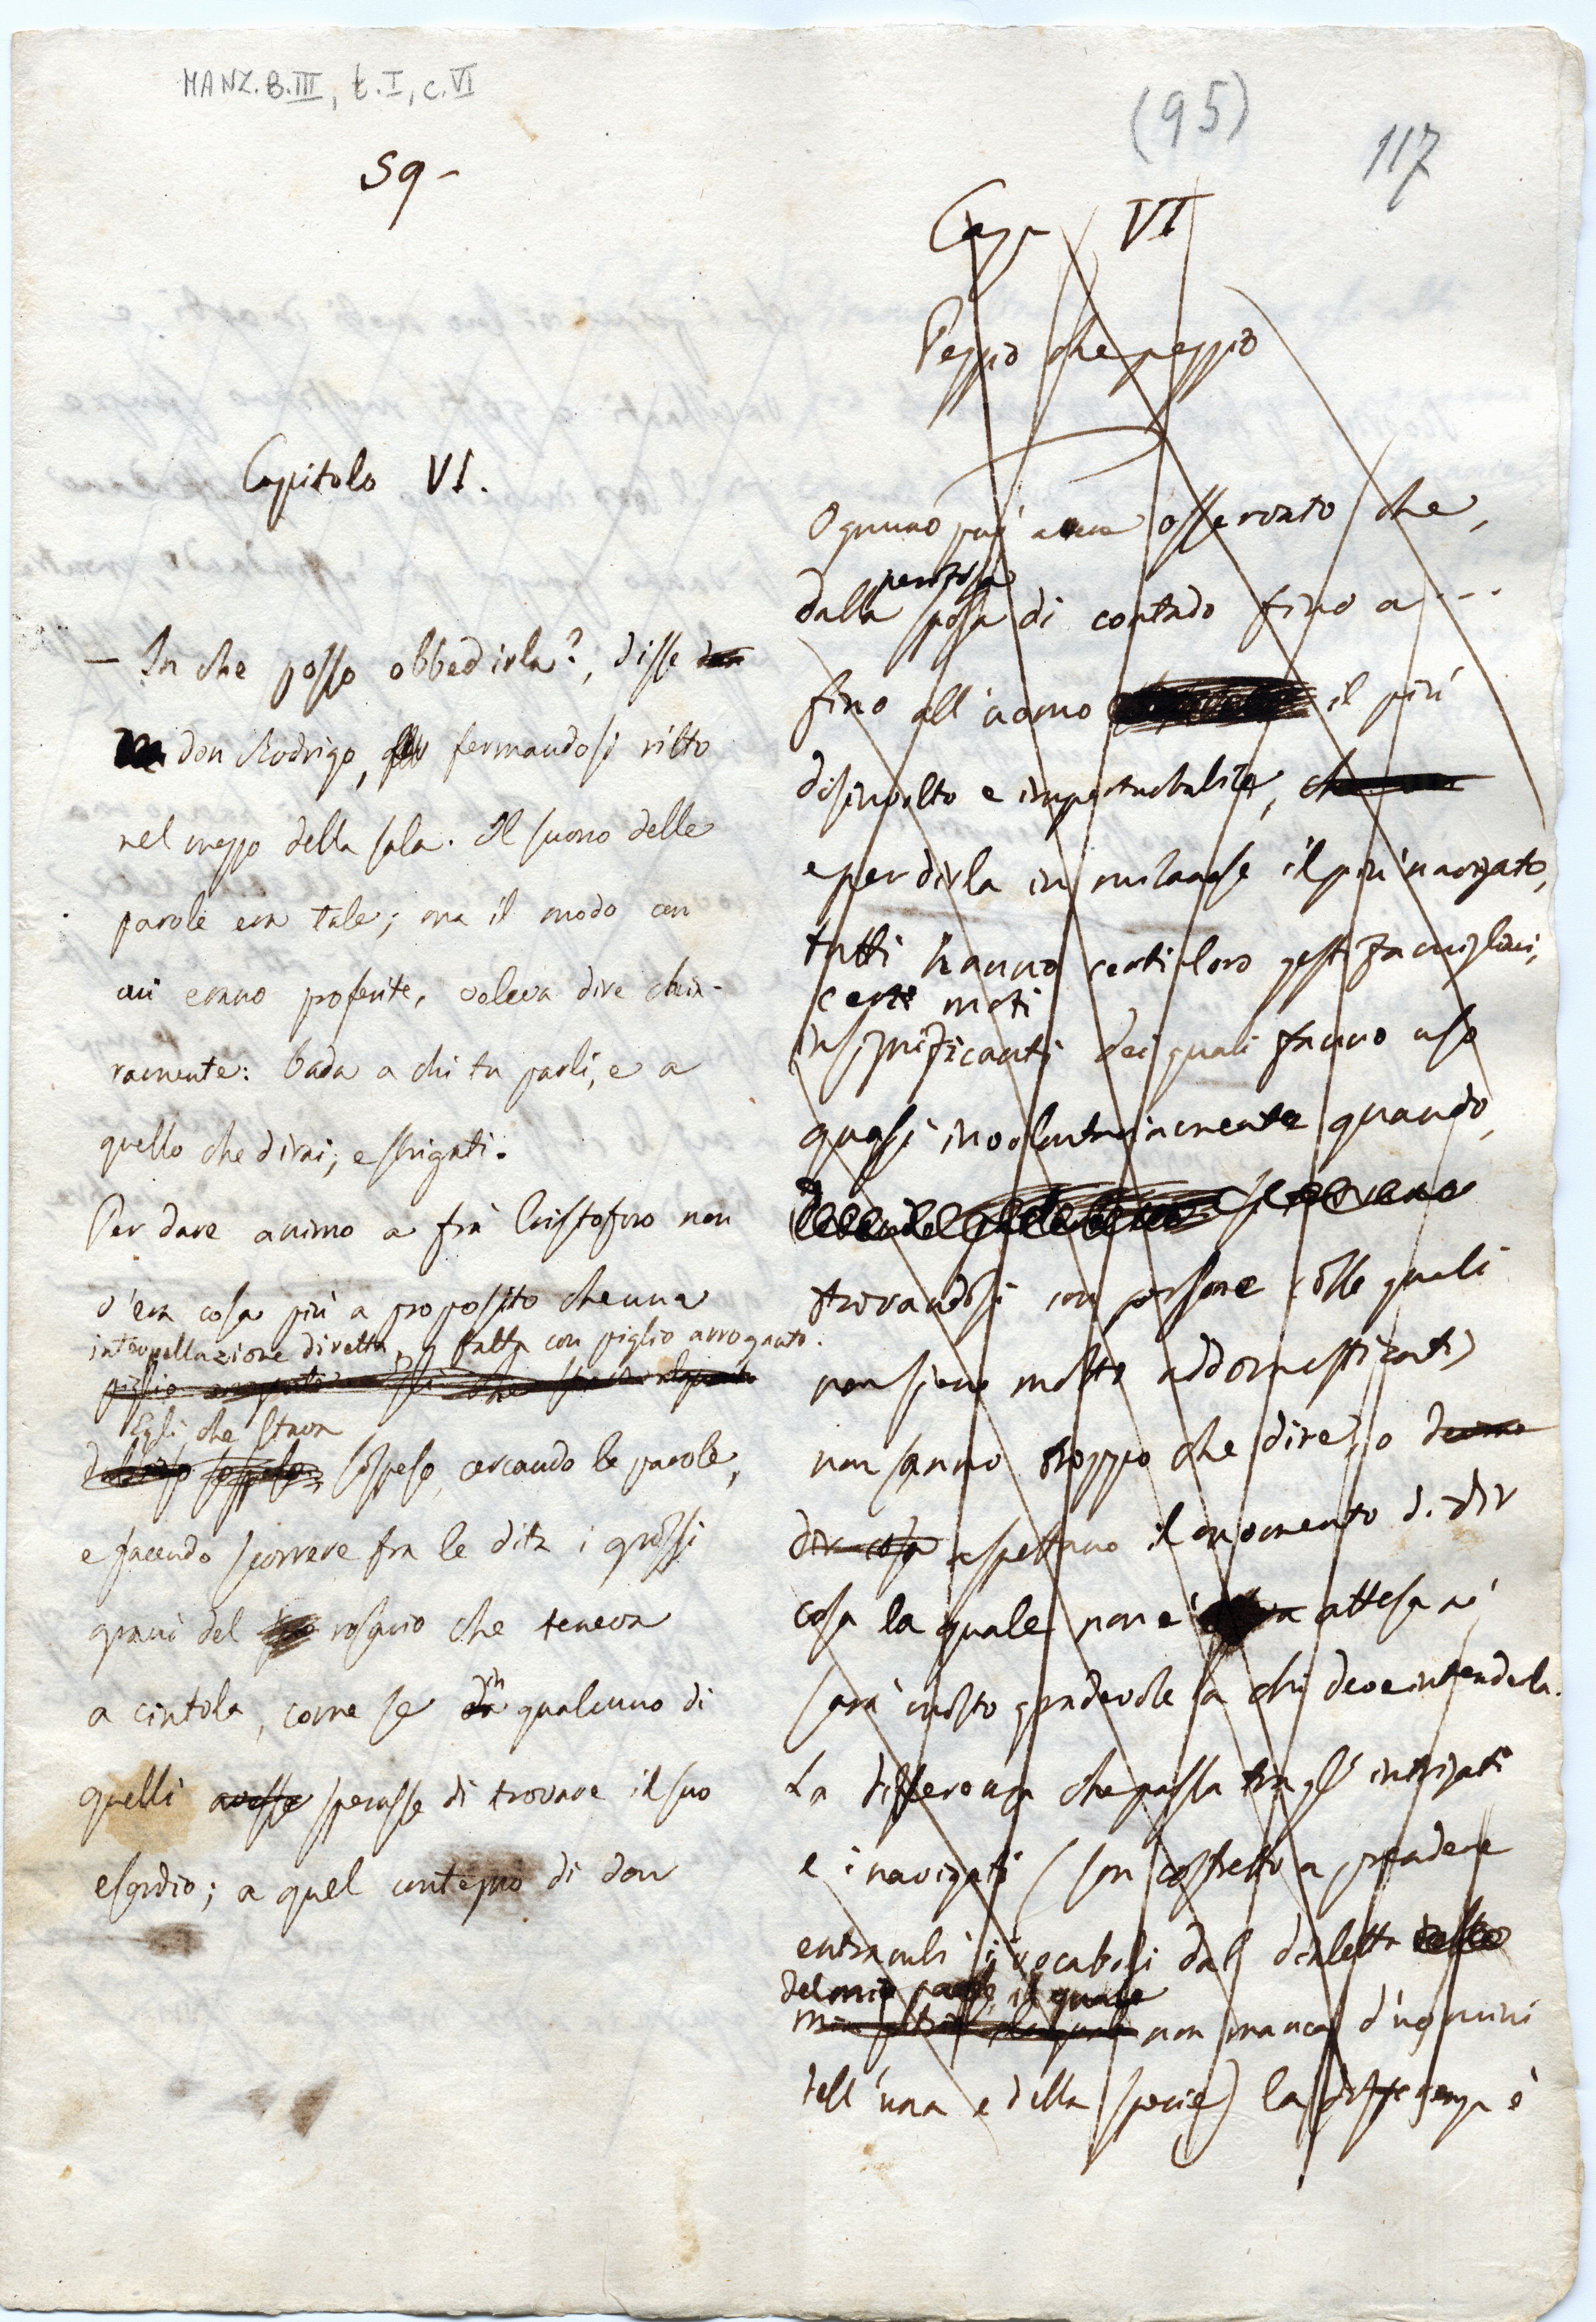 MANZ.B.III, t.I, c.VI
59-
Capitolo VI.
— In che posso obbedirla?, disse don
don Rodrigo, fermandosi ritto
nel mezzo della sala. Il suono delle
parole era tale; ma il modo con
cui erano proferite, voleva dire chia-
ramente: bada a chi tu parli, e a
quello che dirai; e sbrigati.
Per dare animo a fra Cristoforo non
v'era cosa più a proposito che una
interpellazione diretta, fatta con piglio arrogante.
piglio arrogante
Egli che stava
sospeso, sospeso, cercando le parole,
e facendo scorrere fra le dita i grossi
grani del rosario che teneva
a cintola, come se in qualcuno di
quelli avesse sperasse di trovare il suo
esordio; a quel contegno di don
(95)
117
Cap. VI
Peggio che peggio
Ognuno può avere osservato che,
peritosa
dalla sposa di contado fino a ---
fino all'uomo il più
disinvolto e imperturbabile, che
e per dirla in milanese il più navigato,
tutti hanno certi loro gesti famigliari,
certi moti
insignificanti dei quali fanno uso
quasi involontariamente quando,
si trovano
trovandosi con persone colle quali
non sieno molto addomesticati
non sanno troppo che dire, o devono
dir cosa aspettano il momento di dir
cosa la quale non è attesa nè
sarà molto gradevole a chi deve intenderla.
La differenza che passa tra gl' intrigati
e i navigati (son costretto a prendere
entrambi i vocaboli dal dialetto della
del mio paese, il quale
mia non manca d'uomini
dell'una e della specie) la differenza è